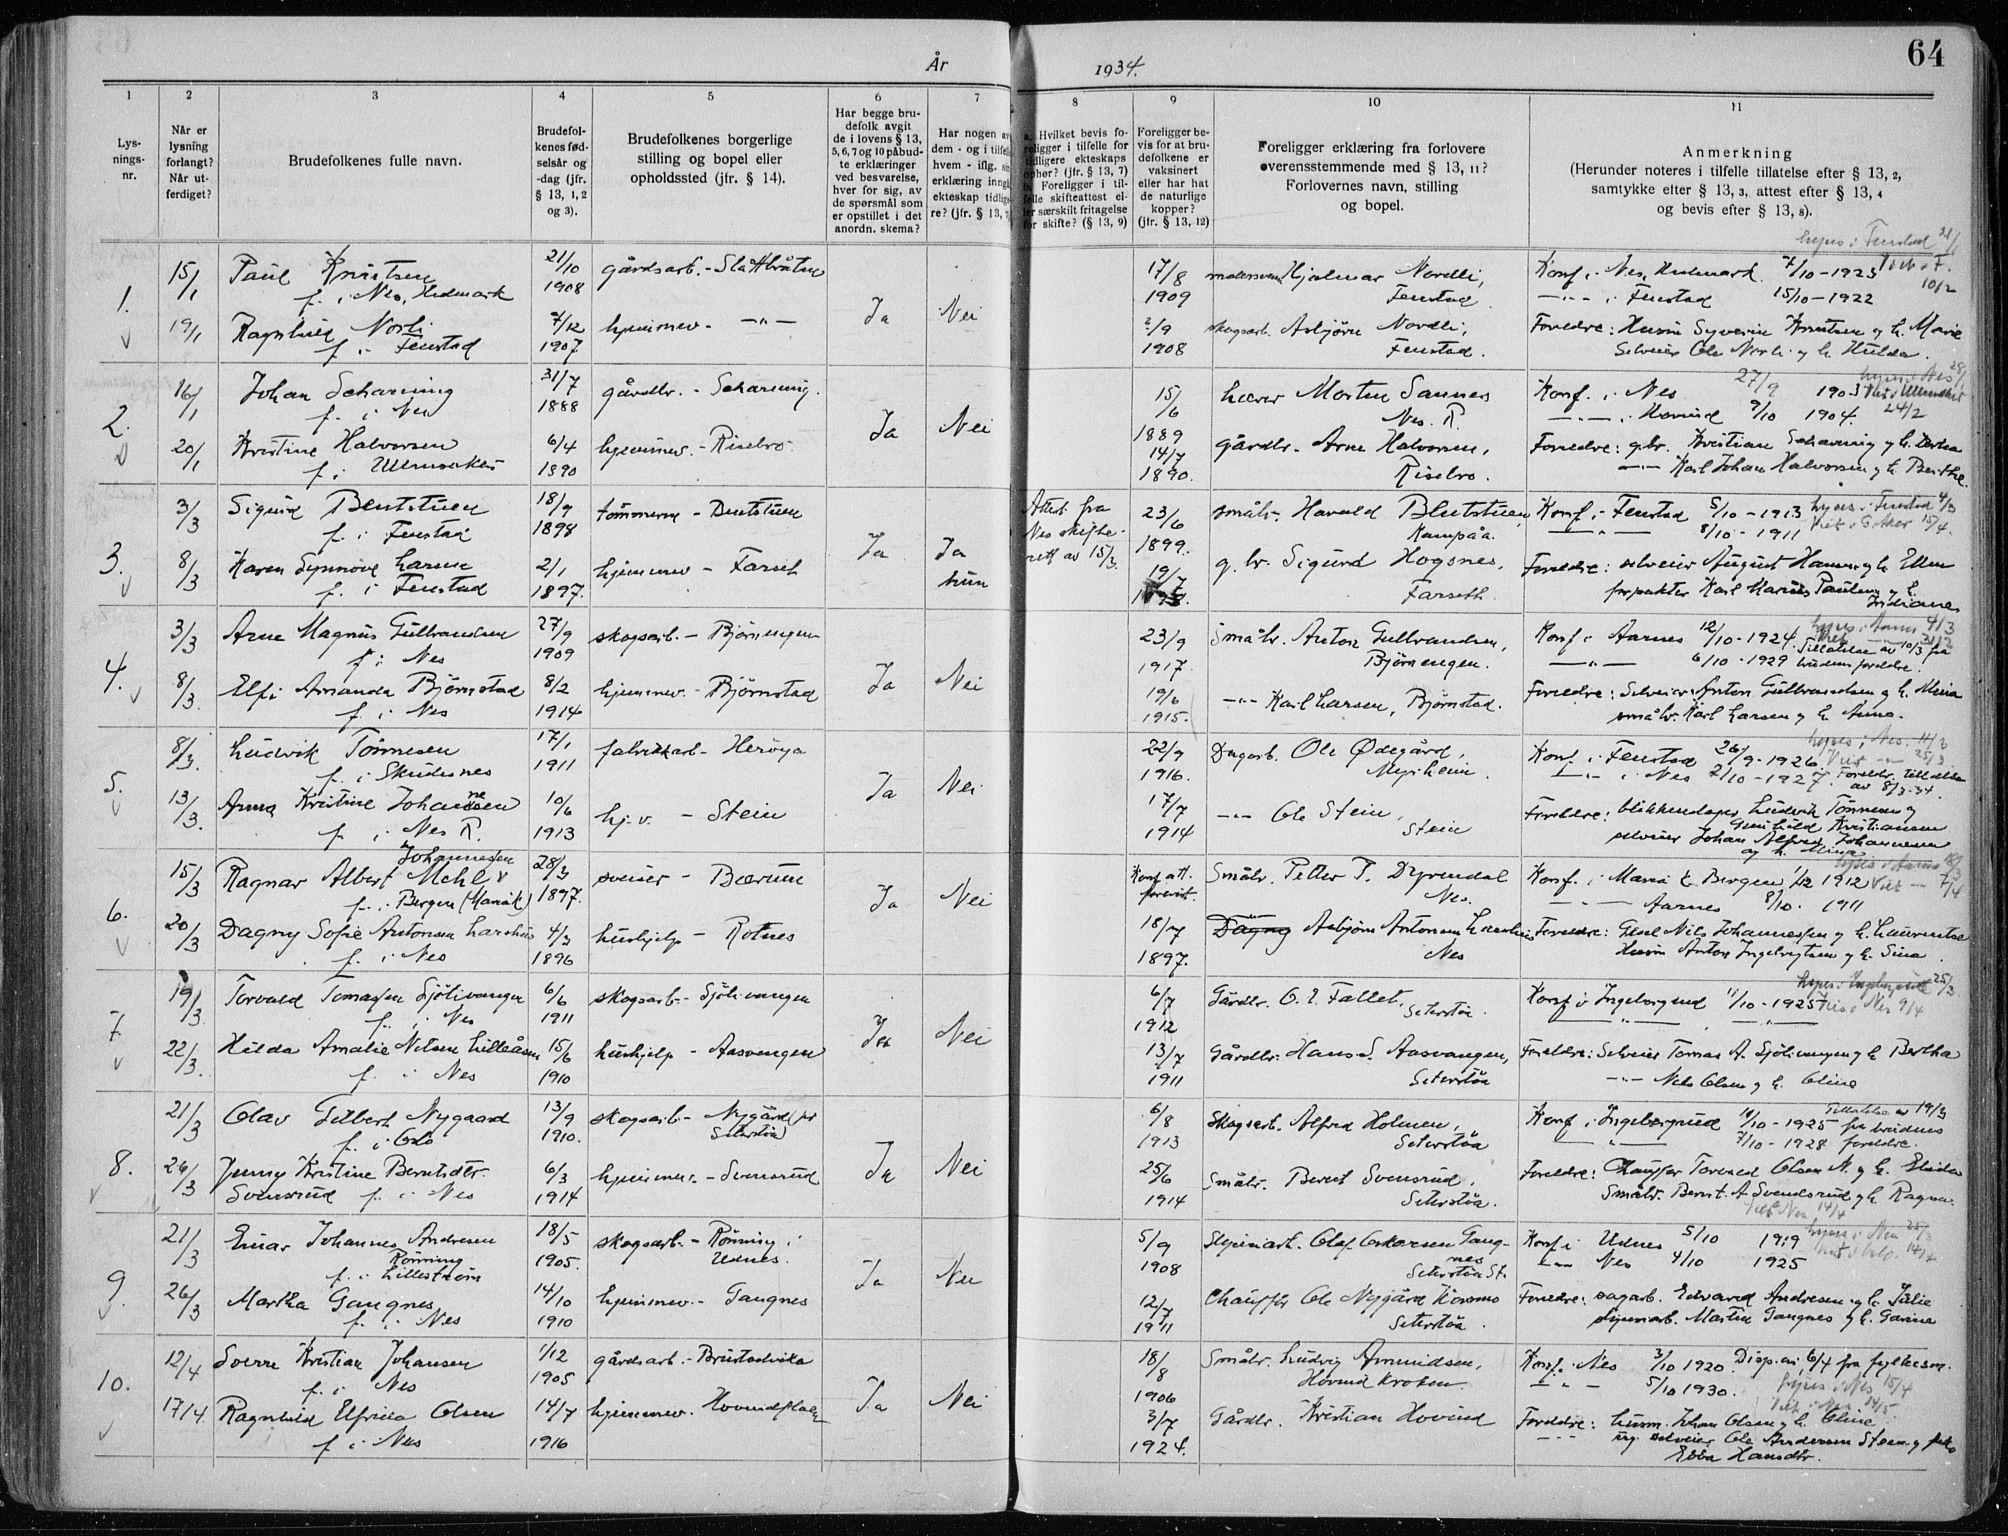 64
År 1934.
1 2 3 4 5 6 7 8 9 10 11
Lys-
nings-
nr.
Når er
lysning
forlangt?
Når ut-
ferdiget?
Brudefolkenes fulle navn.
Brudefol-
kenes fød-
selsår og
-dag (jfr.
§ 13, 1, 2
og 3).
Brudefolkenes borgerlige
stilling og bopel eller
opholdssted (jfr. § 14).
Har begge bru-
defolk avgit
de i lovens § 13,
5, 6, 7 og 10 påbud-
te erklæringer
ved besvarelse,
hver for sig, av
de spørsmål som
er opstillet i det
anordn. skema?
Har nogen av
dem - og i tilfelle
hvem - iflg.
erklæring inngått
ekteskap tidlige-
re? (jfr. § 13, 7)
a. Hvilket bevis fo-
religger i tilfelle for
tidligere ekteskaps
ophør? (jfr. § 13, 7)
b. Foreligger i til-
felle skifteattest el-
ler særskilt fritagelse
for skifte? (§ 13, 9)
Foreligger be-
vis for at bru-
defolkene er
vaksinert
eller har hat
de naturlige
kopper?
(jfr. § 13, 12)
Foreligger erklæring fra forlovere
overensstemmende med § 13, 11?
Forlovernes navn, stilling
og bopel.
Anmerkning
(Herunder noteres i tilfelle tillatelse efter § 13, 2,
samtykke efter § 13, 3, attest efter § 13, 4
og bevis efter § 13, 8).
lyses i Fenstad 21/1
1. 15/1 Paul Knutsen 21/10 1908 gårdsarb. - Slåttbråten Ja Nei 17/8 1909 Hjalmar Nordli, Fenstad Konf. i Nes, Hedmark 7/10 - 1923
f. i Nes, Hedmark — " — i Fenstad 15/10 - 1922 10/2
19/1 Ragnhild Norli 7/12 1907 hjemmev. — " — 2/9 1908 skogsarb. Asbjørn Nordli, Fenstad. Foreldre: Husm Syverin Knutsen og h. Marie
f. i Fenstad Selveier Ole Norli og h. Hulda.
2. 16/1 Johan Scharning 31/7 1888 gårdbr. - Scharning. Ja Nei 15/6 1889 lærer Morten Sannes Nes. R. Konf. i Nes 27/9 1903
f. i Nes — " — i Hovind 9/10 1904. 24/2
20/1 Kristine Halvorsen 6/4 1890 hjemmev. - Risebro 14/7 1890. gårdbr. Arne Halvorsen, Risebro. Foreldre: gbr. Kristian Scharning og h.
f. i Ullensaker — " — Karl Johan Halvorsen og h. Berthe.
3. 3/3 Sigurd Blentstuen 18/9 1898 tømmerm - Blentstuen Ja Ja hun Attest fra Nes skifte-rett av 15/3. 23/6 1899. småbr. Harald Blutstuen, Rampåa. Konf. i Fenstad 5/10 - 1913 lyses i Fenstad 4/3
f. i Fenstad — " — 8/10 - 1911 15/4.
8/3 Karen Synnøve Larsen 2/1 1897. hjemmev - Farset 19/7 g. br. Sigurd Hogsnes, Farseth. Foreldre: selveier August Hansen og h. Ellen
f. i Fenstad forpakter Karl Marius Paulsen og h. Indiane
4. 3/3 Arne Magnus Gulbrandsen 27/9 1909 skogsarb. - Bjørnengen Ja Nei 23/9 1917. Småbr. Anton Gulbrandsen, Bjørnengen. Konf. i Aarnes 12/10 - 1924. lyses i Aarnes 4/3
f. i Nes — " — 6/10 - 1929 Tillatelse av 10/3 fra brudens foreldre.
8/3. Elfi Amanda Bjørnstad 8/2 1914 hjemmev. - Bjørnstad 19/6 1915. — " — Karl Larsen, Bjørnstad. Foreldre: Selveier Anton Gulbrandsen og h. Mina
f. i Nes småbr. Karl Larsen og h. Anna.
5. 8/3. Ludvik Tønnesen 17/1 1911 fabrikkarb - Herøya Ja Nei 22/9 1916. Dagarb. Ole Ødegård, Myrheim. lyses i Nes. 11/3
f. i Skudesnes Konf. i Fenstad 26/9 - 1926. Viet — " — 25/3
13/3. Anna Kristine Johannesen 10/6 1913 hj.v. - Stein 17/7 1914 — " — Ole Stein, Stein — " — i Nes 2/10 - 1927. Foreldr. tillatelse av 8/3-34.
f. i Nes R. Foreldre: blikkenslager Ludvik Tønnesen og Gunhild Kristiansen
selveier Johan Alfred Johannesen og h. Mina
6. 15/3 Ragnar Albert Johannessen Mehl 28/3 1897. sveiser - Bærum Ja Nei Konf. att. forevist. Småbr. Petter P. Dyrendal Nes. Konf. i Maria k. Bergen, 1912 Viet — " — 7/4
f. i Bergen (Maria k) — " — Aarnes 8/10. 1911
20/3 Dagny Sofie Antonsen Larshus 4/3 1896 hushjelp - Rotnes 18/7 1897. Dagny Asbjørn Antonsen Larshus Nes Foreldre: Nils Johannessen og h. Laurentse
f. i Nes Husm Anton Ingebrigtsen og h. Sina.
7. 19/3 Torvald Tomassen Sjølivangen 6/6 1911 skogsarb - Sjølivangen Ja Nei 6/7 1912 Gårdbr. O. E. Fallet, Seterstøa. lyses i Ingeborgrud 25/3
f. i Nes Konf. i Ingeborgrud 11/10 - 1925 Viet i Nes 9/4
22/3. Hilda Amalie Nilsen Lilleåsen 15/6 1910 hushjelp - Aasvangen 13/7 1911 Gårdbr. Hans S. Aasvangen, Seterstøa Foreldre: Selveier Tomas A. Sjølivangen og h. Bertha
f. i Nes — " — Nils Olsen og h. Oline
8. 21/3 Olav Gilbert Nygaard 13/9 1910. skogsarb - Nygård pr Seterstøa Ja Nei 6/8 1913 Skogsarb. Alfred Holmen, Seterstøa Konf. i Ingeborgrud 11/10 - 1925 Tillatelse av 19/3 fra brudens
f. i Oslo — " — 7/10 - 1928 foreldre.
26/3 Jenny Kristine Berntsdtr. Svensrud f. i Nes 6/3 1914 hjemmev. - Svensrud 25/6 1914 Småbr. Bernt Svensrud, Seterstøa. Foreldre: Chauffør Torvald Olsen N. og h.
Småbr. Bernt A Svendsrud og h. Ragna.
Viet Nes 14/4
9. 21/3 Einar Johannes Andresen Rønning 18/5 1905. skogsarb. - Rønning i Udnes. Ja Nei 5/9 1908 Olaf Oskarsen Gangnes Seterstøa St. Konf. i Udnes 5/10 1919 lyses i Nes 25/3
f. i Lillestrøm — " — Nes 4/10 1925
26/3 Martha Gangnes 14/10 1910 hjemmev. - Gangnes 12/7 1911 Chauffør Ole Nygård Korsmo Seterstøa. Foreldre: sagarb. Edvard Andresen og h. Julie
f. i Nes Martin Gangnes og h. Garine
10. 12/4 Sverre Kristian Johansen 1/12 1905 gårdsarb. - Brustadvika Ja Nei 18/8 1906 Småbr. Ludvig Amundsen, Hovind kroken. Konf. i Nes 3/10 1920. Disp. av 6/4 fra fylkesm.
f. i Nes — " — 5/10 1930. lyses i Nes 15/4
17/4. Ragnhild Elfrida Olsen 14/7 1916 hjemmev. Hovindflaten 3/7 1924. Gårdbr. Kristian Hovind Viet i Nes 14/5.
f. i Nes Foreldre: husm. Johan Olsen og h. Oline
— " — selveier Ole Andersen Steen og frk. Ebba Hansdtr.